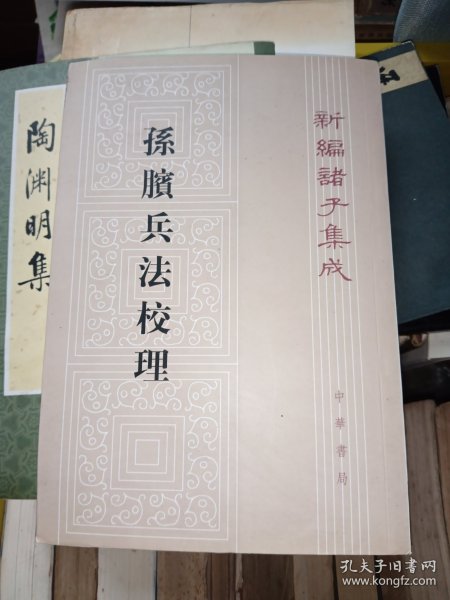 孫臏兵法校理
新編諸子集成
中華書局
陶渊明集
孔夫子旧书网
www.kongfz.com